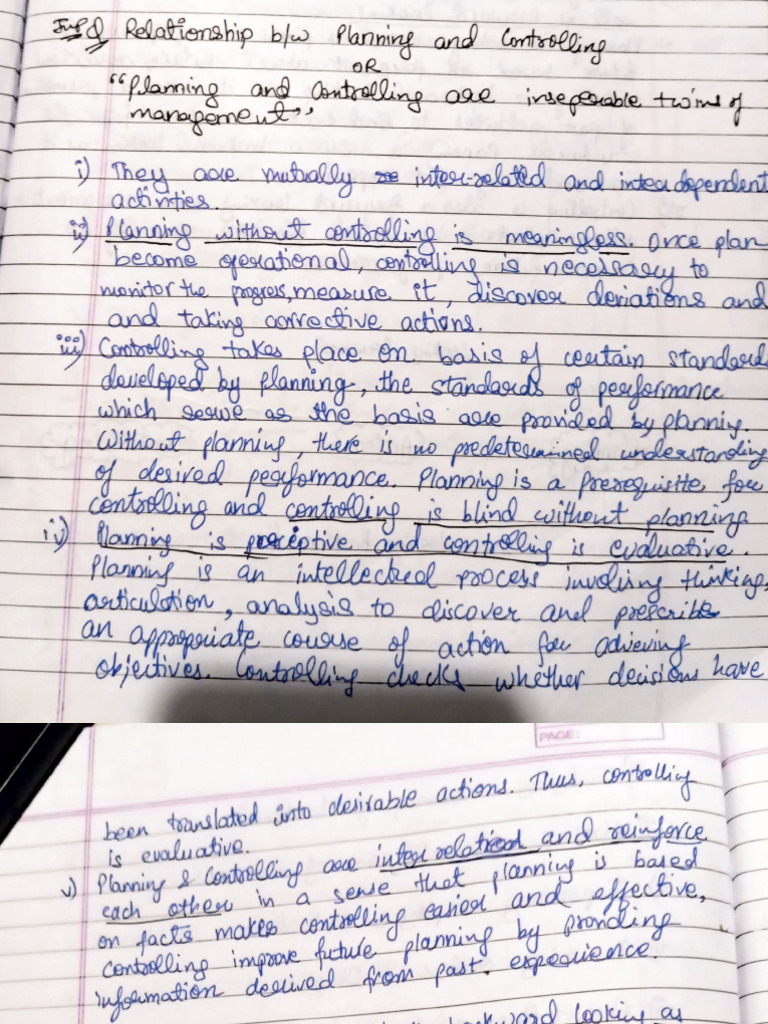 Imp Q Relationship b/w Planning and Controlling
OR
"Planning and Controlling are inseperable twins of
management"
i) They are mutually inter-related and interdependent
activities.
ii) Planning without controlling is meaningless. Once plan
become operational, controlling is necessary to
monitor the progress, measure it, discover deviations and
and taking corrective actions.
iii) Controlling takes place on basis of certain standards
developed by planning, the standards of performance
which serve as the basis are provided by planning.
Without planning, there is no predetermined understanding
of desired performance. Planning is a prerequisite for
controlling and controlling is blind without planning
iv) Planning is and controlling is evaluative.
Planning is an intellectual process involving thinking,
articulation, analysis to discover and prescribe
an appropriate course of action for achieving
objectives. Controlling checks whether decisions have
PAGE:
been translated into desirable actions. Thus, controlling
is evaluative.
v) Planning & Controlling are inter related and reinforce
each other in a sense that planning is based
on facts makes controlling easier and effective,
controlling improve future planning by providing
information derived from past experience.
looking as